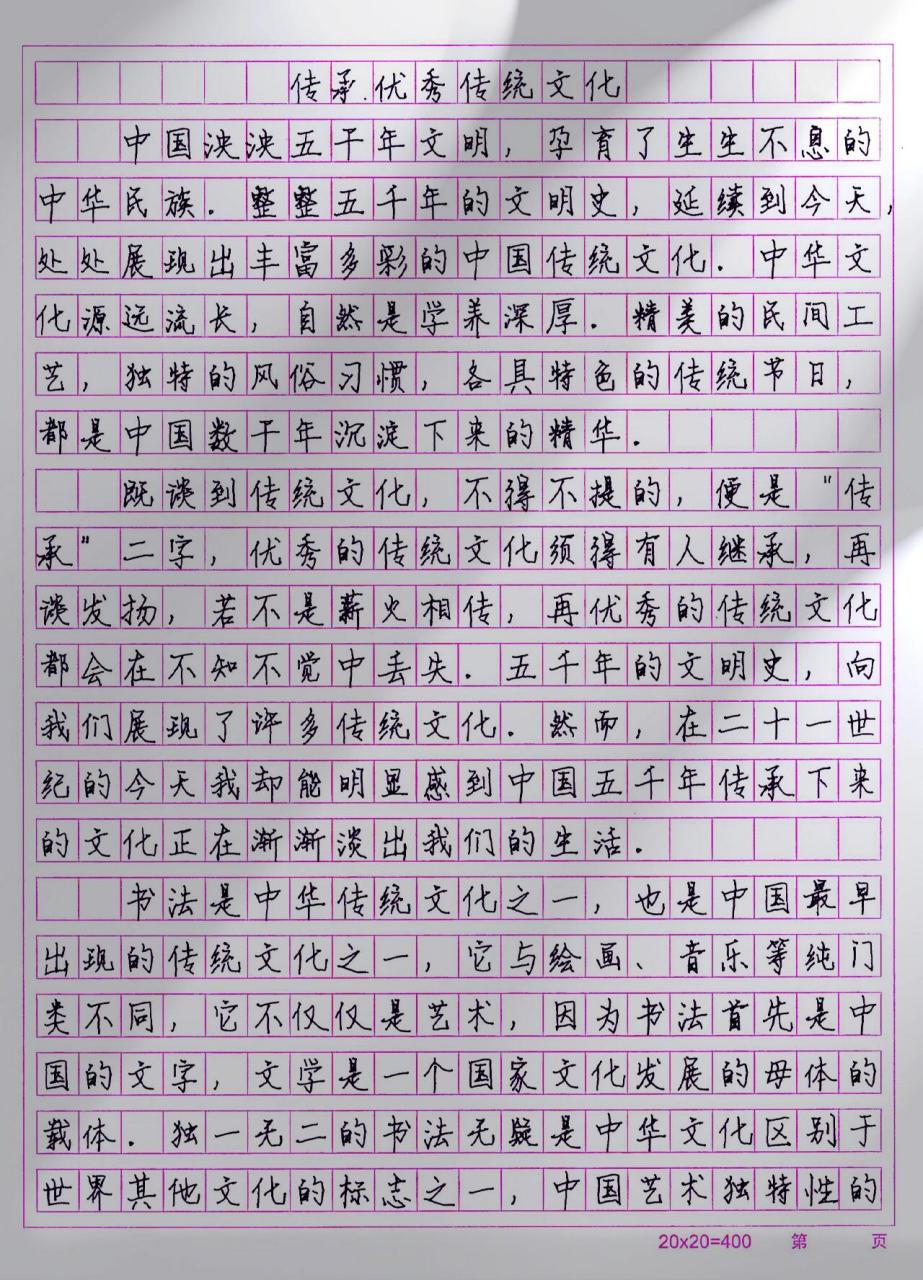 传承优秀传统文化
中国泱泱五千年文明，孕育了生生不息的
中华民族．整整五千年的文明史，延续到今天，
处处展现出丰富多彩的中国传统文化．中华文
化源远流长，自然是学养深厚．精美的民间工
艺，独特的风俗习惯，各具特色的传统节日，
都是中国数千年沉淀下来的精华．
既谈到传统文化，不得不提的，便是“传
承”二字，优秀的传统文化须得有人继承，再
谈发扬，若不是薪火相传，再优秀的传统文化
都会在不知不觉中丢失．五千年的文明史，向
我们展现了许多传统文化．然而，在二十一世
纪的今天我却能明显感到中国五千年传承下来
的文化正在渐渐淡出我们的生活．
书法是中华传统文化之一，也是中国最早
出现的传统文化之一，它与绘画、音乐等纯门
类不同，它不仅仅是艺术，因为书法首先是中
国的文字，文学是一个国家文化发展的母体的
载体．独一无二的书法无疑是中华文化区别于
世界其他文化的标志之一，中国艺术独特性的
20x20=400 第 页